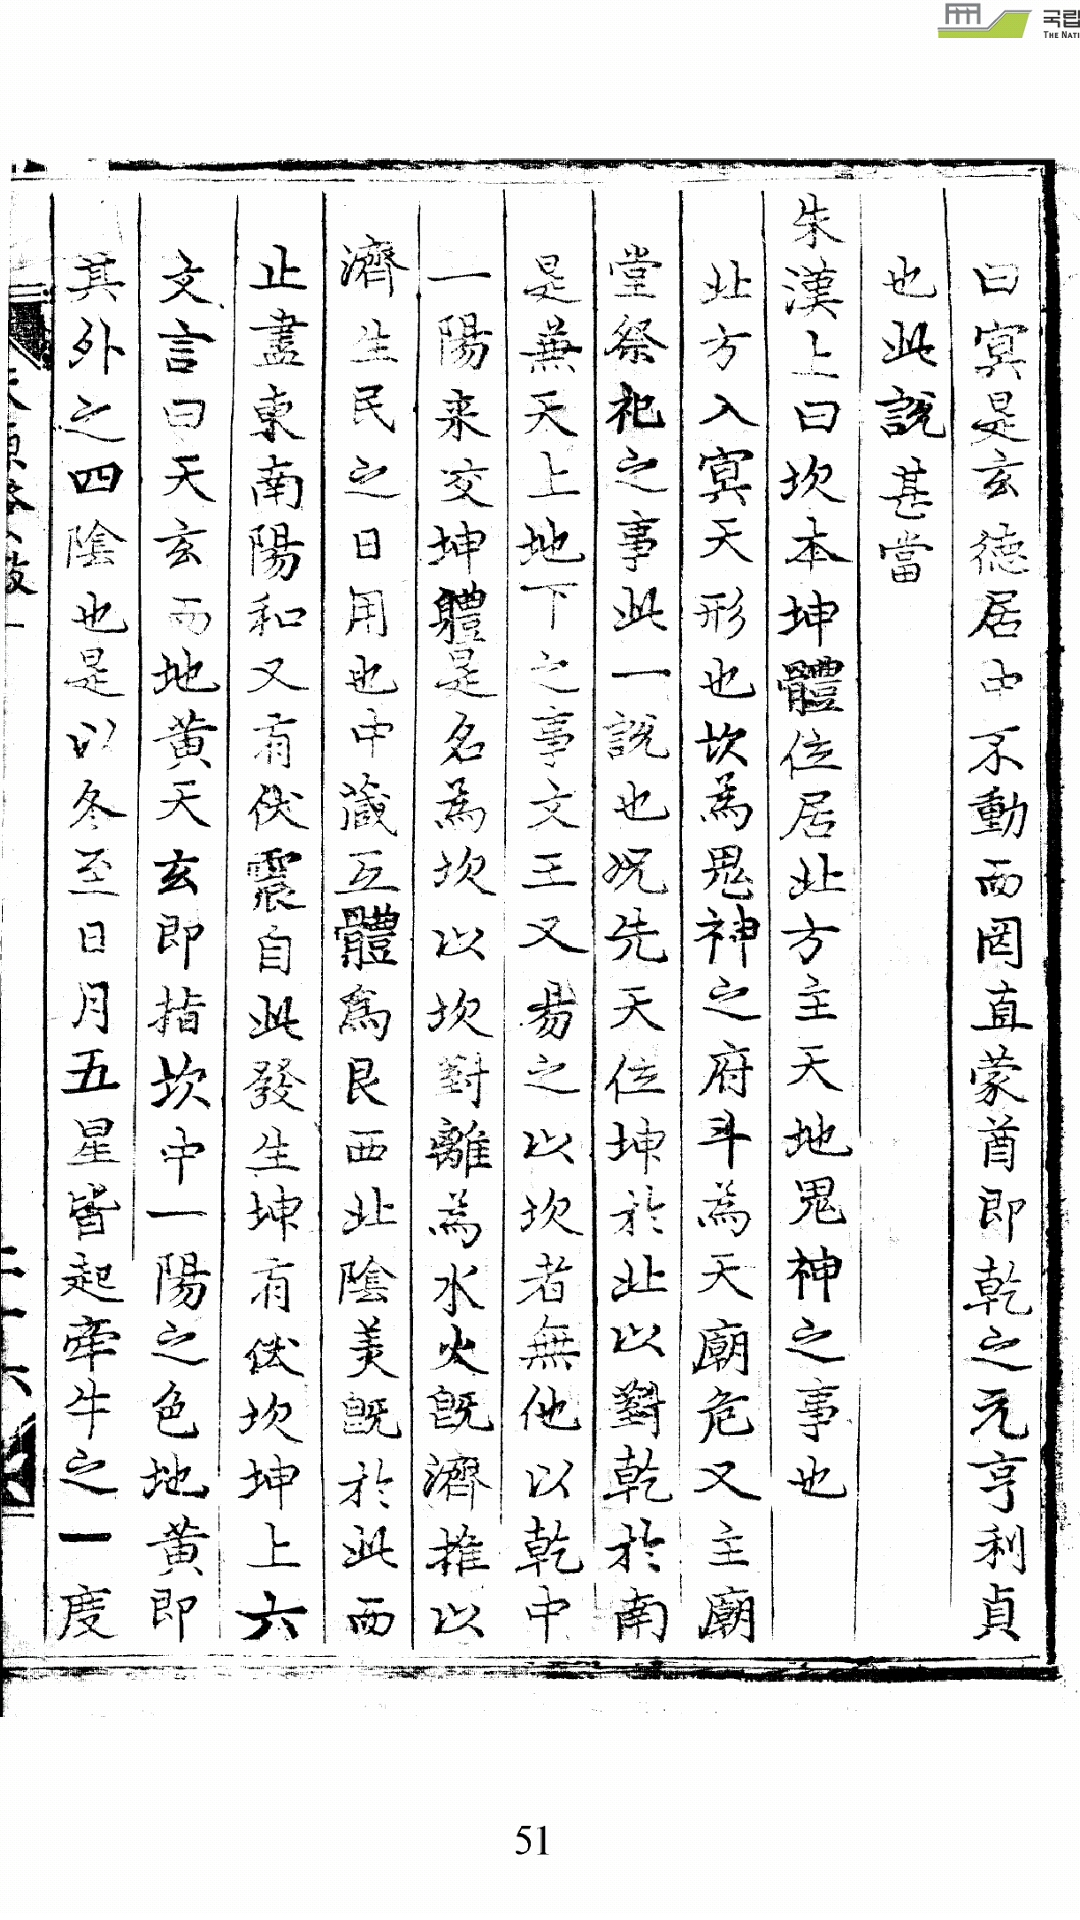 국립
THE NATI
曰冥是玄德居中不動而罔直蒙酋即乾之元亨利貞
也此說甚當
朱漢上曰坎本坤體位居北方主天地鬼神之事也
北方入冥天形也坎為鬼神之府斗為天廟危又主廟
堂祭祀之事此一說也况先天位坤於北以對乾於南
是兼天上地下之事文王又易之以坎者無他以乾中
一陽来交坤體是名為坎以坎對離為水火旣濟推以
濟生民之日用也中藏互體為艮西北陰美旣於此而
止盡東南陽和又有伏震自此發生坤有伏坎坤上六
文言曰天玄而地黃天玄即指坎中一陽之色地黃即
其外之四陰也是以冬至日月五星皆起牽牛之一度
二十六
51